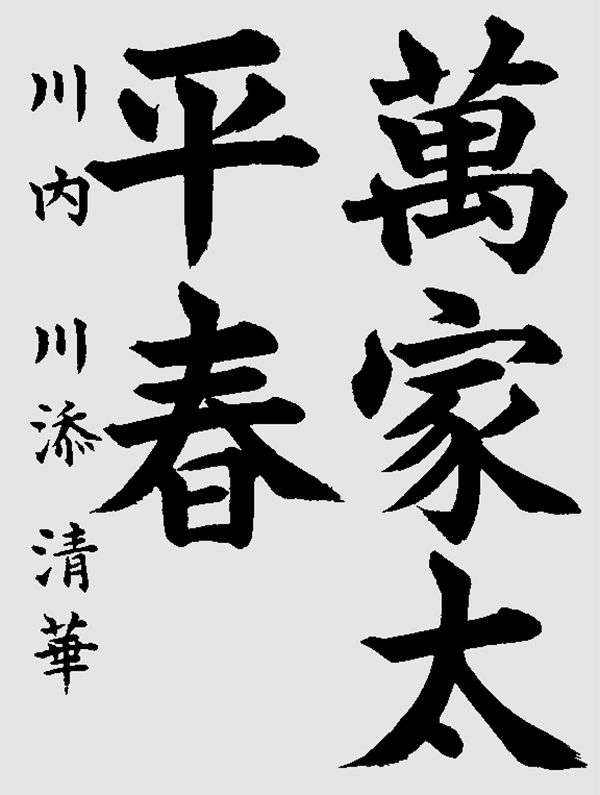 萬家太
平春
川内 川添 清華